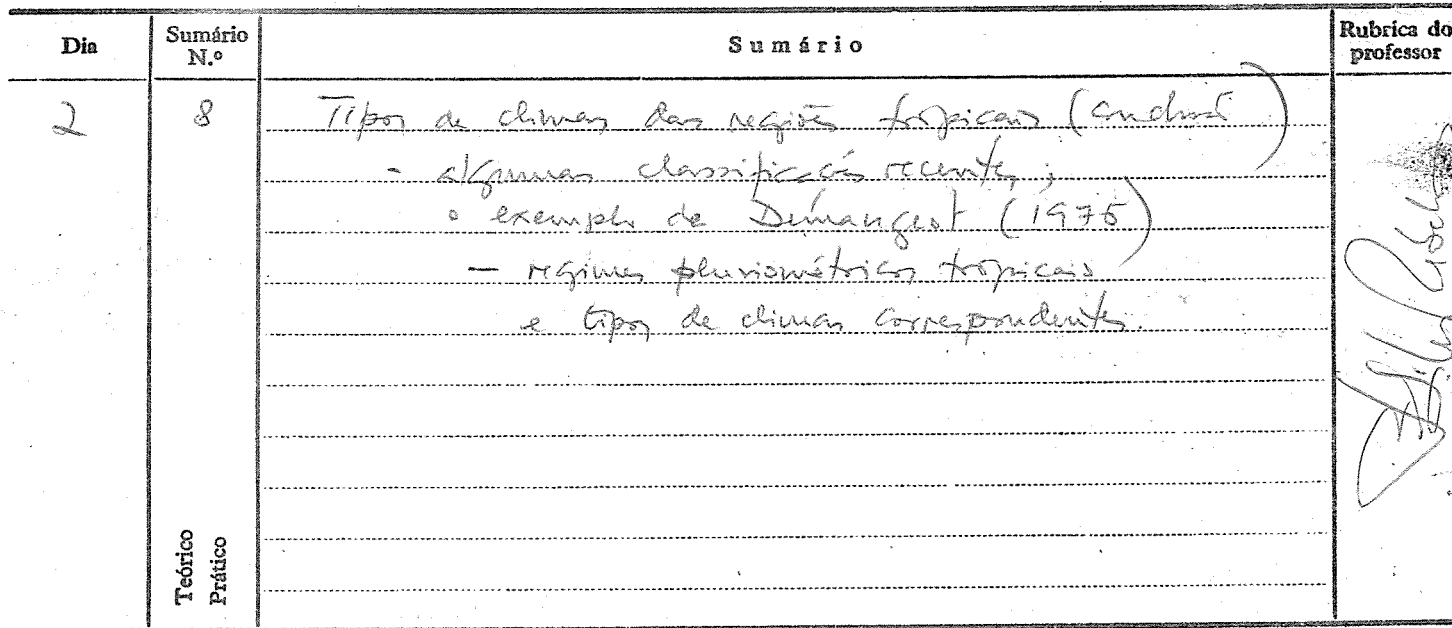 Dia Sumário N.º Sumário Rubrica do professor
2 8 Tipos de climas das regiões tropicais (conclusã
- algumas classificações recentes;
o exemplo de Demangeot (1976)
- regimes pluviométricos tropicais
e tipos de climas correspondentes.
Teórico
Prático